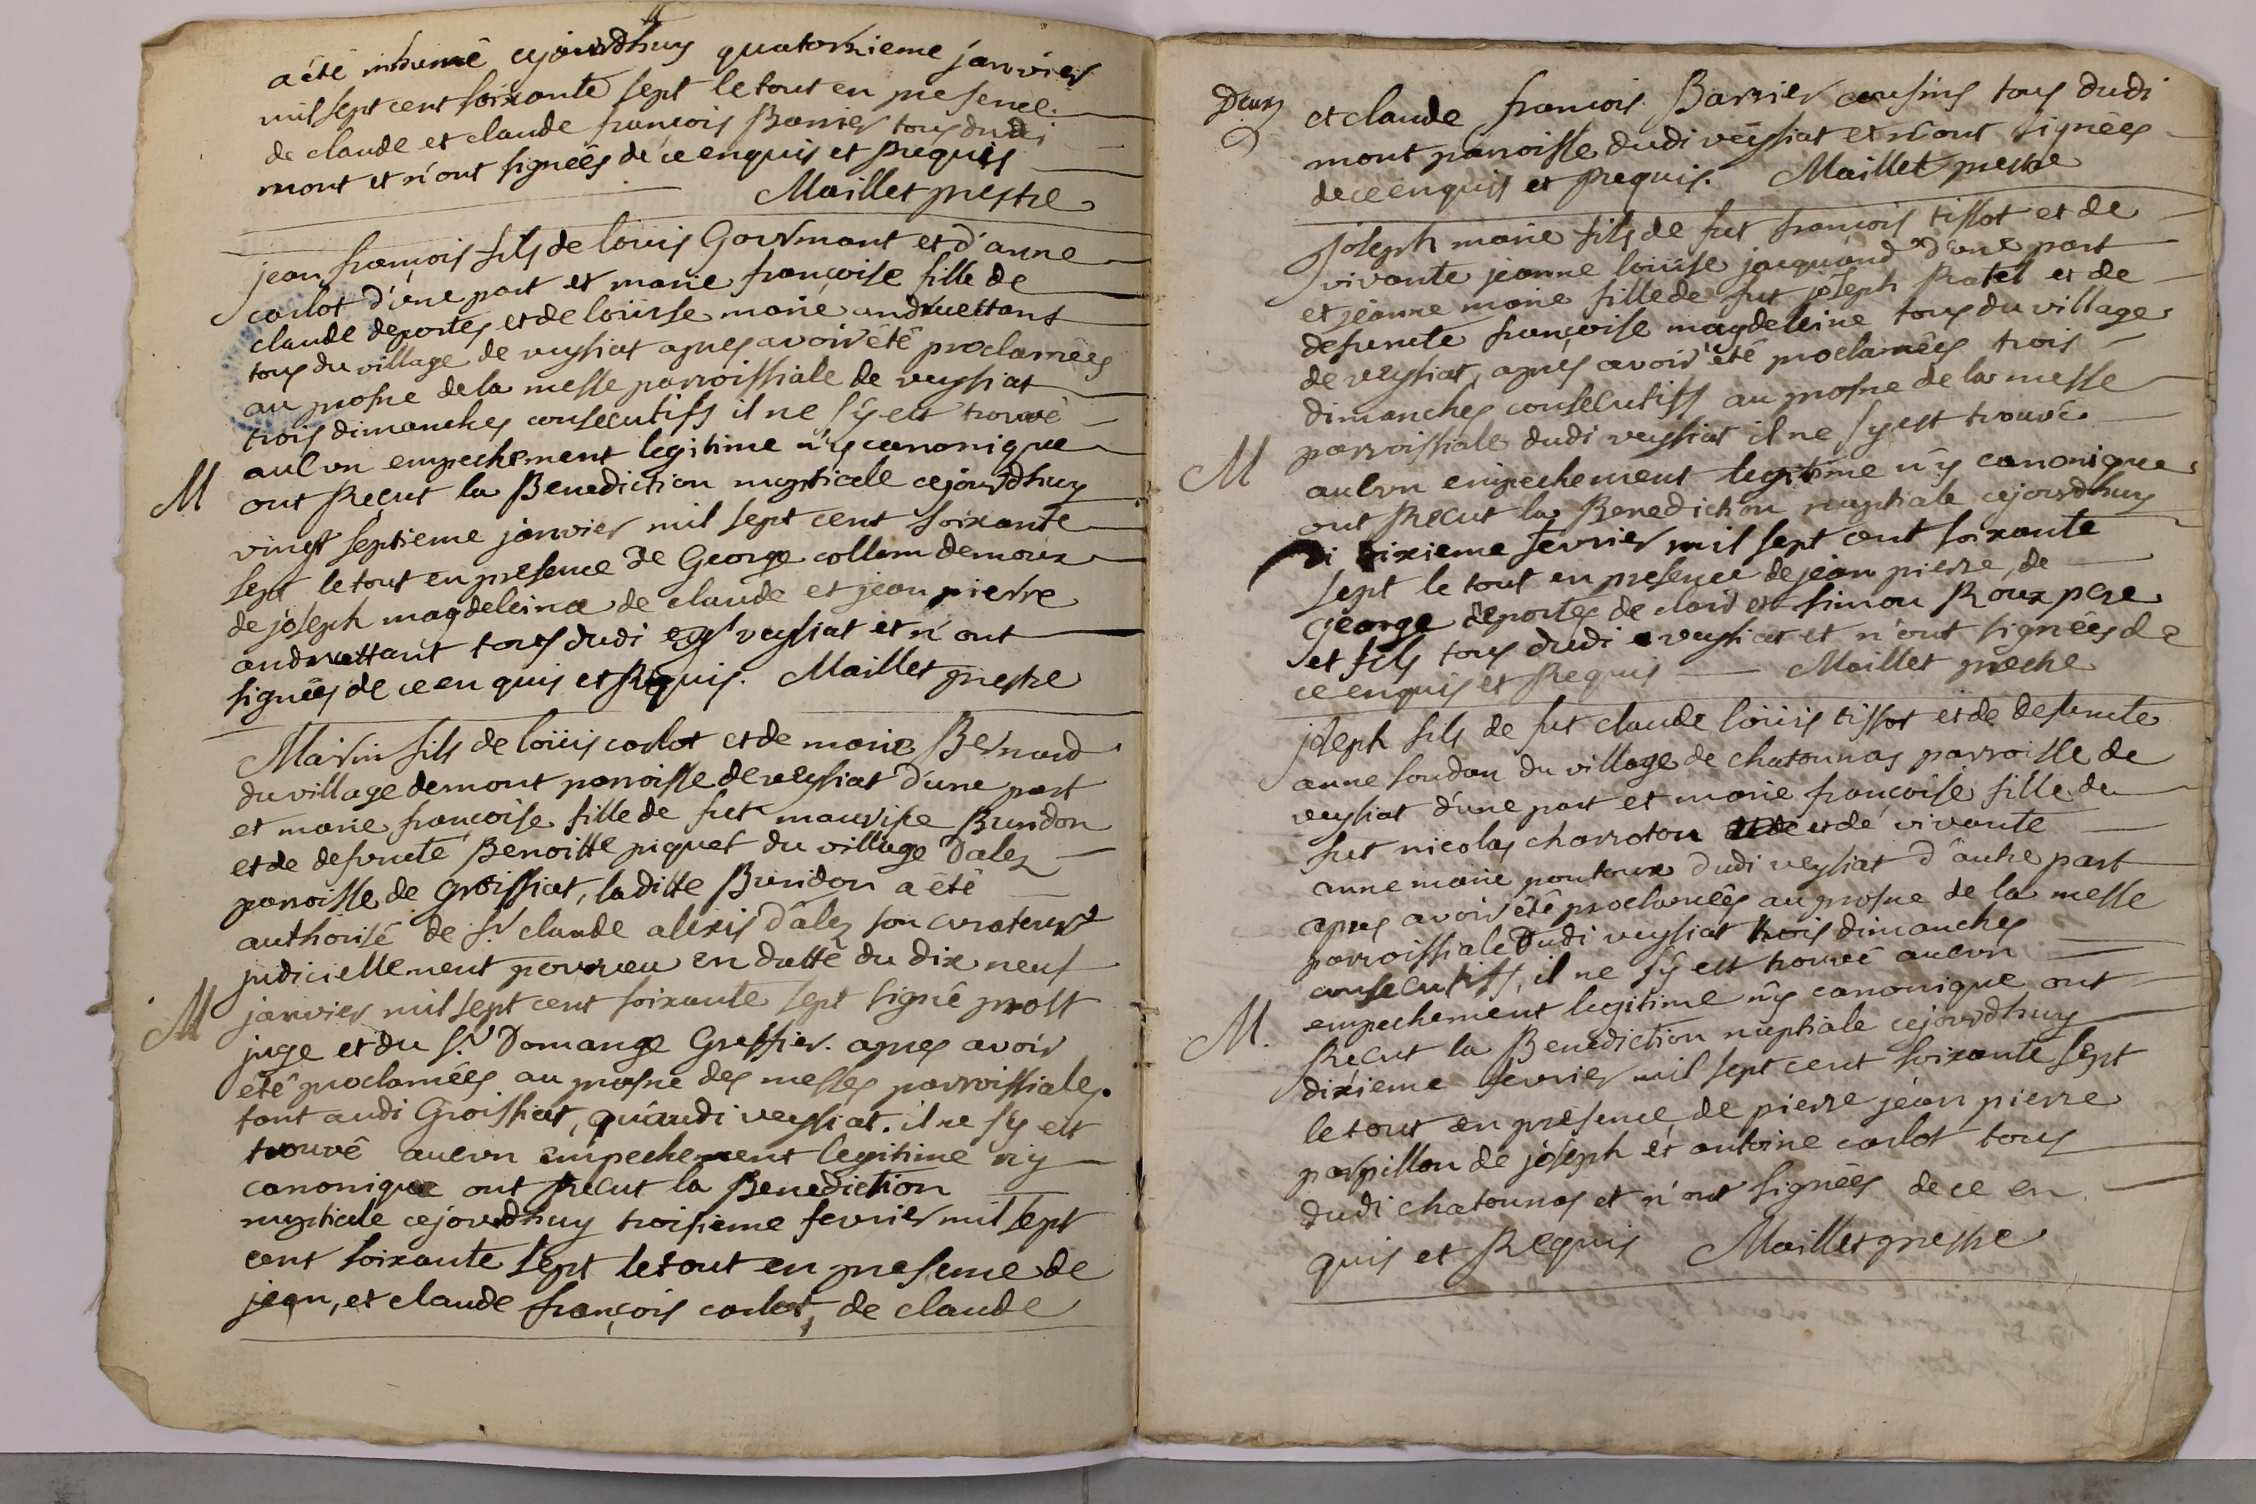 a été inhumé cejourdhuy quatorzieme janvier
mil sept cent soixante sept le tout en presence
de claude et claude francois Barrier tous dudi
mont et n'ont signées de ce enquis et Requis
Maillet prestre
jean françois fils de louis Gourmant et d'anne
carlot d'une part et marie françoise fille de
claude deportes et de loüise marie andruettant
tous du village de veysiat apres avoir été proclamées
au prosne de la messe parroissiale de veysiat
trois dimanches consecutifs il ne s'y est trouvé
aucun empechement legitime n'y canonique
M ont Recut la Benediction nuptiale cejourdhuy
vingt septieme janvier mil sept cent soixante
sept le tout en presence de George collom demoux
de joseph magdeleine de claude et jean pierre
andruettant tous dudi veysiat et n'ont
signées de ce enquis et Requis. Maillet prestre
Marin fils de loüis carlot et de marie Bernard
du village demont parroisse de veysiat d'une part
et marie francoise fille de fut maurise Buridon
et de defuncte Benoitte piquet du village d'alez
parroisse de Groissiat, laditte Buridon a été
authorisé de Sr. claude alexis d'alez son curateur
judiciellement pourvu en datte du dix neuf
M janvier mil sept cent soixante sept signé prost
juge et du Sr. Domange Greffier. apres avoir
été proclamées au prosne des messes parroissiales.
tant audi Groissiat, qu'audi veysiat. il ne s'y est
trouvé aucun empechement legitime n'y
canonique ont Recut la Benediction
nuptiale cejourdhuy troisieme fevrier mil sept
cent soixante sept le tout en presence de
jean, et claude françois carlot, de claude
Deux
et claude francois Barrier cousins tous dudi
mont parroisse dudi veysiat et n'ont signées
de ce enquis et Requis. Maillet prestre
joseph marie fils de fut francois tissot et de
vivante jeanne loüise jacquand d'une part
et jeanne marie fille de fut joseph Ratel et de
defuncte françoise magdeleine tous du village
de veysiat, apres avoir été proclamées trois
dimanches consecutifs au prosne de la messe
parroissiale dudi veysiat il ne s'y est trouvé
M aucun empechement legitime n'y canonique
ont Recut la Benediction nuptiale cejourdhuy
dixieme fevrier mil sept cent soixante
sept le tout en presence de jean pierre, de
George deportes de clair et simon Roux pere
et fils tous dudi veysiat et n'ont signées de
ce enquis et Requis Maillet prestre
joseph fils de fut claude loüis tissot et de defuncte
anne soudan du village de chatonnas parroisse de
veysiat d'une part et marie francoise fille de
fut nicolas charroton et de vivante
anne marie pontoux dudi veysiat d'autre part
apres avoir été proclamées au prosne de la messe
parroissiale dudi veysiat trois dimanches
consecutifs, il ne s'y est trouvé aucun
empechement legitime n'y canonique ont
M. Recut la Benediction nuptiale cejourdhuy
dixieme fevrier mil sept cent soixante sept
le tout en presence de pierre jean pierre
parpillon de joseph et antoine carlot tous
dudi chatonnas et n'ont signées de ce en
quis et Requis Maillet prestre